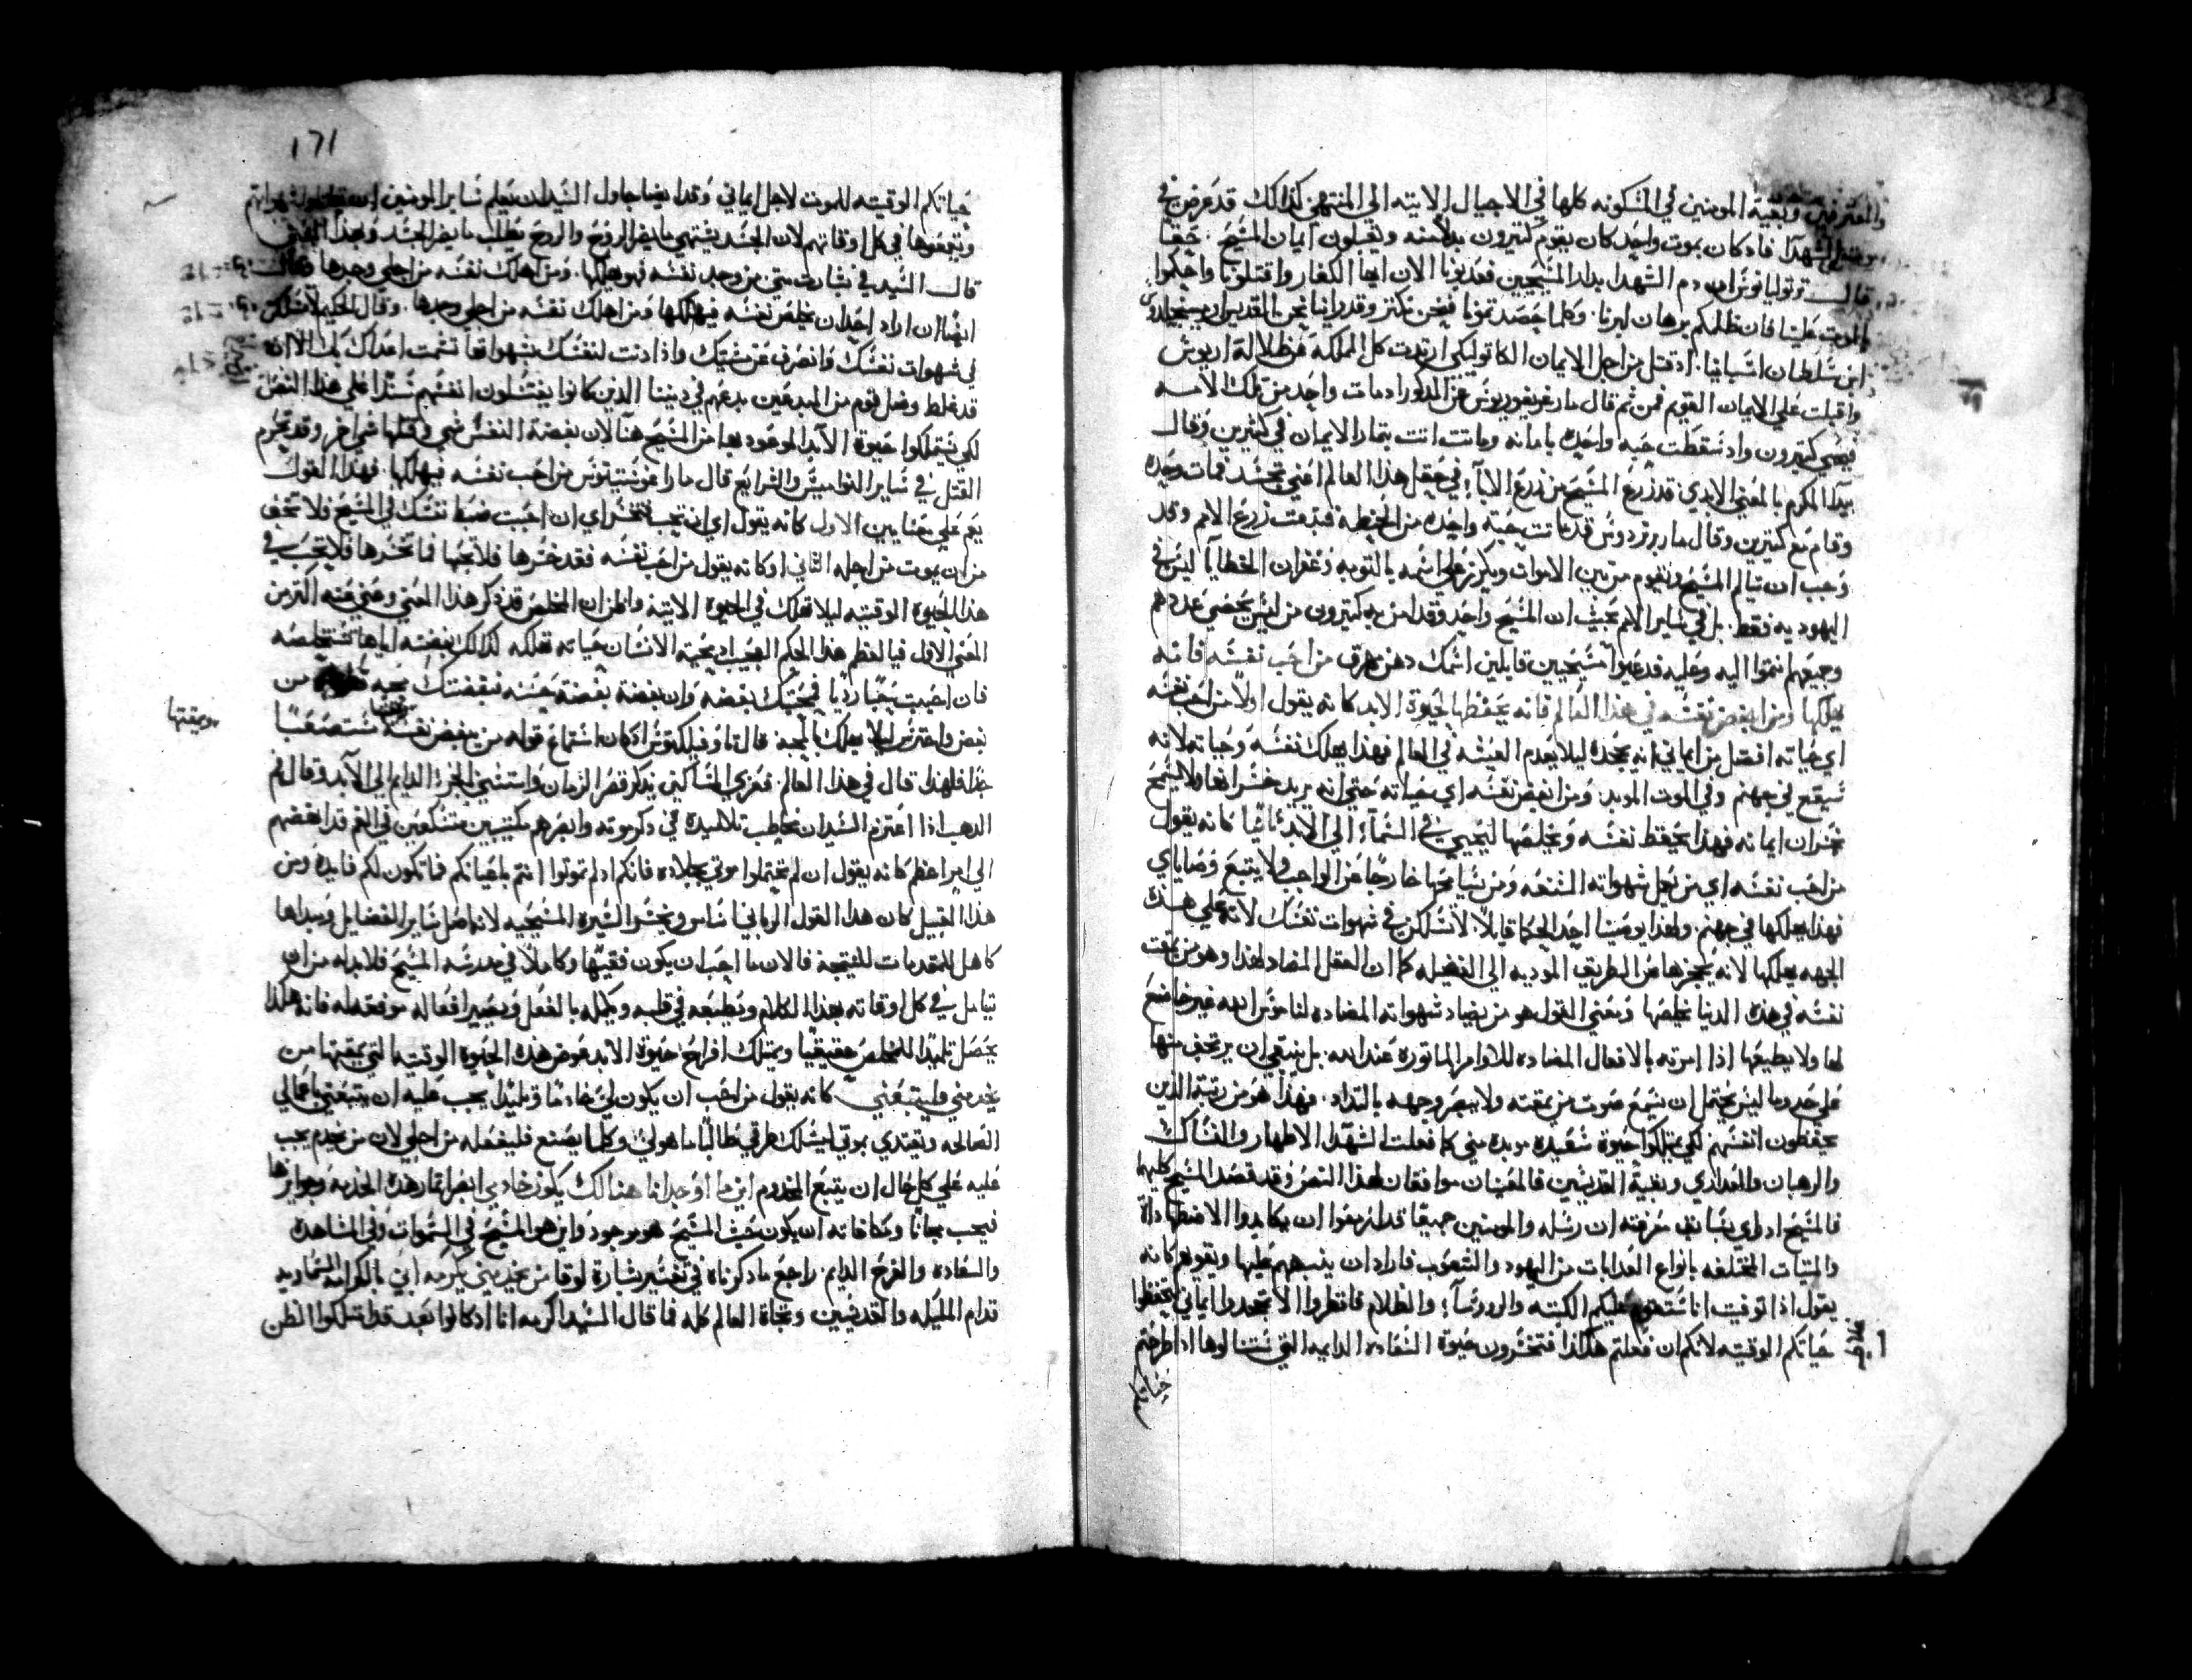 والمعترفين وبقية المومنين في المسكونه كلها في الاجيال الاتيه الى المنتهى كذلك قد عرض في
الشهدا فاذ كان بموت واحد كان يقوم كثيرون بدلا منه ويقبلون ايمان المسيح . حقا
قال ترتوليانوس ان دم الشهدا بدار المسيحيين فعذبونا الان ايها الكفار واقتلونا واحكموا
بالموت علينا فان ظلمكم برهان لبرنا . وكلما حصدتمونا فنحن نكثر وقد راينا نحن بالقديس
ابن سلطان اسبانيا . اذ قتل من اجل الايمان الكاتوليكي ارتدت كل المملكة من ظلالة اريوس
واقبلت على الايمان القويم فمن ثم قال مار غريغوريوس عن المذكور اد مات واحد من تلك الامه
فبقي كثيرون واد سقطت حبه واحده باماته وماتت اتت بثمار الايمان في كثيرين وقال
بيدا المكرم بالمعنى الابدي قد زرع المسيح من زرع الابآء في حقل هذا العالم اعني تجسد فمات وحده
وقام مع كثيرين وقال مار برنردوس قد ماتت حبة واحده من الحنطة فنبتت زرع الامم وقد
وجب ان يتالم المسيح ويقوم من بين الاموات ويكرز على اسمه بالتوبه وغفران الخطايا ليس في
اليهوديه فقط . بل في ساير الامم بحيث ان المسيح واحد وقد امن به كثيرون من ليس يحصى عددهم
وجميعهم انتموا اليه وعليه قد دعيوا مسيحيين قايلين اسمك دهن مهرق من احب نفسه فانه
يهلكها ومن ابغض نفسه في هذا العالم فانه يحفظها لحيوة الابد كانه يقول اولا من احب نفسه
اي حياته افضل من ايماني انه يجحده ليلا يعدم العيشه في العالم فهذا يهلك نفسه وحياته لانه
سيقع في جهنم وفي الموت الموبد . ومن ابغض نفسه اي حياته حتى انه يريد خسرانها ولا يسمح
بخسران ايمانه فهذا يحفظ نفسه ويخلصها ليحيي في السمآء الى الابد ثانيا كانه يقول
من احب نفسه اي من يقبل شهواته المتنعه ومن يتبعها خارجا عن الواجب ولا يتبع وصاياي
فهذا يهلكها في جهنم . ولهذا يوصينا احد الحكما قايلا . لا تسلكن في شهوات نفسك لانه على هذه
الجهه يهلكها لانه يحجزها عن الطريق الموديه الى الفضيله كما ان العقل المضاد لهذا وهو من يمقت
نفسه في هذه الدنيا يخلصها ومعنى القول هو من يضاد شهواته المضاده لناموس الله غير خاضع
لها ولا يطيعها اذا امرته بالافعال المضاده للاوامر الماتوره عند الله . بل ينبغي ان يرتجف منها
على حد وما ليس يحتمل ان يسمع صوت من يمقته ولا يبصر وجهه بالتداد . فهذا هو من رتبة الذين
يحفظون انفسهم لكي يمتلكوا حيوة سعيده موبده مني كما فعلت الشهدا الاطهار والنساك
والرهبان والعدارى وبقية القديسين فالمعنيان موافقان لهذا النص وقد قصد المسيح كليهما
فالمسيح اد راي بسابق معرفته ان رسله والمومنين جميعا قد ازمعوا ان يكابدوا الاضطهادات
والميتات المختلفه بانواع العدابات من اليهود والشعوب فاراد ان ينبههم عليها ويقويهم كانه
يقول اذا توفيت انا عليكم الكتبه والروسآء والظلام فانظروا الا تجحدوا ايماني لتحفظوا
حياتكم الوقتيه لانكم ان فعلتم هكذا فتخسرون حيوة السعاده الدايمه التي ستنالوها اذا طرحتم
حياتكم
171
حياتكم الوقتيه للموت لاجل ايماني وقد ايضا حاول السيد ان يعلم ساير المومنين ان شهواتهم
ويقمعوها في كل اوقاتهم لان الجسد يشتهي ما يضر الروح والروح يطلب ما يضر الجسد وبهذا المعنى
قال السيد في بشارت متى من وجد نفسه فهو يهلكها . ومن اهلك نفسه من اجلي وجدها وقال
ايضا ان اراد احد ان يخلص نفسه فيهلكها ومن اهلك نفسه من اجلي وجدها . وقال الحكيم لا تسلكن
في شهوات نفسك وانصرف عن مشيتك واذا دنت لنفسك بشهواتها تشمت اعداك بك الا ان
قد غلط وضل قوم من المبدعين بدعهم في ديننا الذين كانوا يقتلون انفسهم ستدا على هذا النص
لكي يمتلكوا حيوة الابد الموعود بها من المسيح هنا لان بغضة النفس شي وقتلها شي اخر وقد تحرم
القتل في ساير النواميس والشرايع قال مار اغوستينوس من احب نفسه فيهلكها . فهذا القول
يعم على معنايين الاول كانه يقول اي ان تحب فتخسر اي ان احببت ضبط نفسك في المسيح فلا تخف
من ان يموت من اجله الثاني او كانه يقول من احب نفسه فقد خسرها فلا تحبها فما تخسرها فلا تحب في
هذا الحيوه الوقتيه ليلا تهلك في الحيوه الاتيه واظن ان المخلص قد ذكر هذا المعنى وعني عنه اكتر من
المعنى الاول فيا لعظم هذا الحكم العجيب اد محبة الانسان حياته تهلكه كذلك بغضته اياها تستخلصه
فان احببت حبا رديا فمحبتك بغضه وان بغضة بغضة حسنه فبغضتك محبه من
وبمقتها
بغض واحترس ليلا يهلك بالمحبة قال تاوفيلكتوس اذ كان استماع قوله من يبغض نفسه مستصعبا
جدا فلهذا قال في هذا العالم . فعزي المساكين بذكر قصر الزمان واستثني الجزا الدايم الى الابد وقال فم
الدهب اذا اعتزم السيد ان يخاطب تلاميذه في ذكر موته وابصرهم مكتيبين متسكعين في الغم قد انهضهم
الى امر اعظم كانه يقول ان لم تحتملوا موتي بجلاده فانكم اد لم تموتوا انتم باحياتكم فما تكون لكم فايده ومن
هذا القبيل كان هذا القول الرباني اساس وبحر السيرة المسيحيه لانه اصل ساير الفضايل ومبداها
كاهل المقدمات للنتيجة فالان ما احب ان يكون فقيها وكاملا في مدرسة المسيح فلابد له من ان
يتامل في كل اوقاته بهذا الكلام ويطبعه في قلبه ويكمله بالفعل ويصيير افعاله موافقه له فانه هكذا
يحصل تلميذا للمخلص حقيقيا ويمتلك افراح حيوة الابد عوض هذه الحيوة الوقتيه التي يمقتها من
يخدمني فليتبعني كانه يقول من احب ان يكون لي خادما وتلميدا يجب عليه ان يتبعني باعمالي
الصالحه ويقتدي بموتي ليسلك طرقي طالبا ما هو لي وكلما يصنع فليفعله من اجلي لان من يخدم يجب
عليه على كل حال ان يتبع المخدوم اين ما اوجد انا هنالك يكون خادمي ابصر اثمار هذه الخدمة وجوايزها
فيجب مجانا ومكافاته ان يكون حيث المسيح هو موجود واين هو المسيح في السموات وفي المشاهده
والسعاده والفرح الدايم . راجع ما ذكرناه في تفسير بشارة لوقا من يخدمني يكرمه ابي بالكرامه السماويه
قدام المليكه والقديسين وتجاة العالم كله فما قال السيد اكرمه انا اد كانوا بعد قد امتلكوا الظن